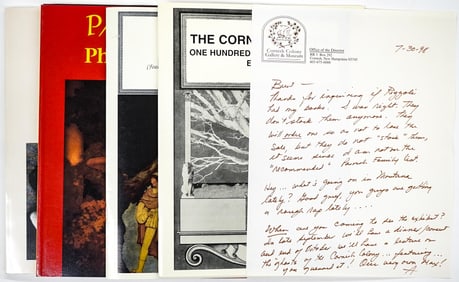 PA
Ph
THE CORN
ONE HUNDRED
E
Cornish Colony
Gallery & Museum
Office of the Director
Cornish, New Hampshire 03745
7-30-98
Thanks for inquiring if Rizzoli
had my books. I was right. They
don't stock them anymore. They
will order one so as not to lose the
sale, but they do not "stock" them,
it seems since I am not on the
"recommended" Parrish Family list.
Hey... what's going on in Montana
lately? Good guys you guys are getting
a rough rap lately....
When are you coming to see the exhibit?
In late September we'll have a dinner
and end of October we'll have a lecture on
the ghosts of the Cornish Colony... featuring...
you guessed it! Our very own
A